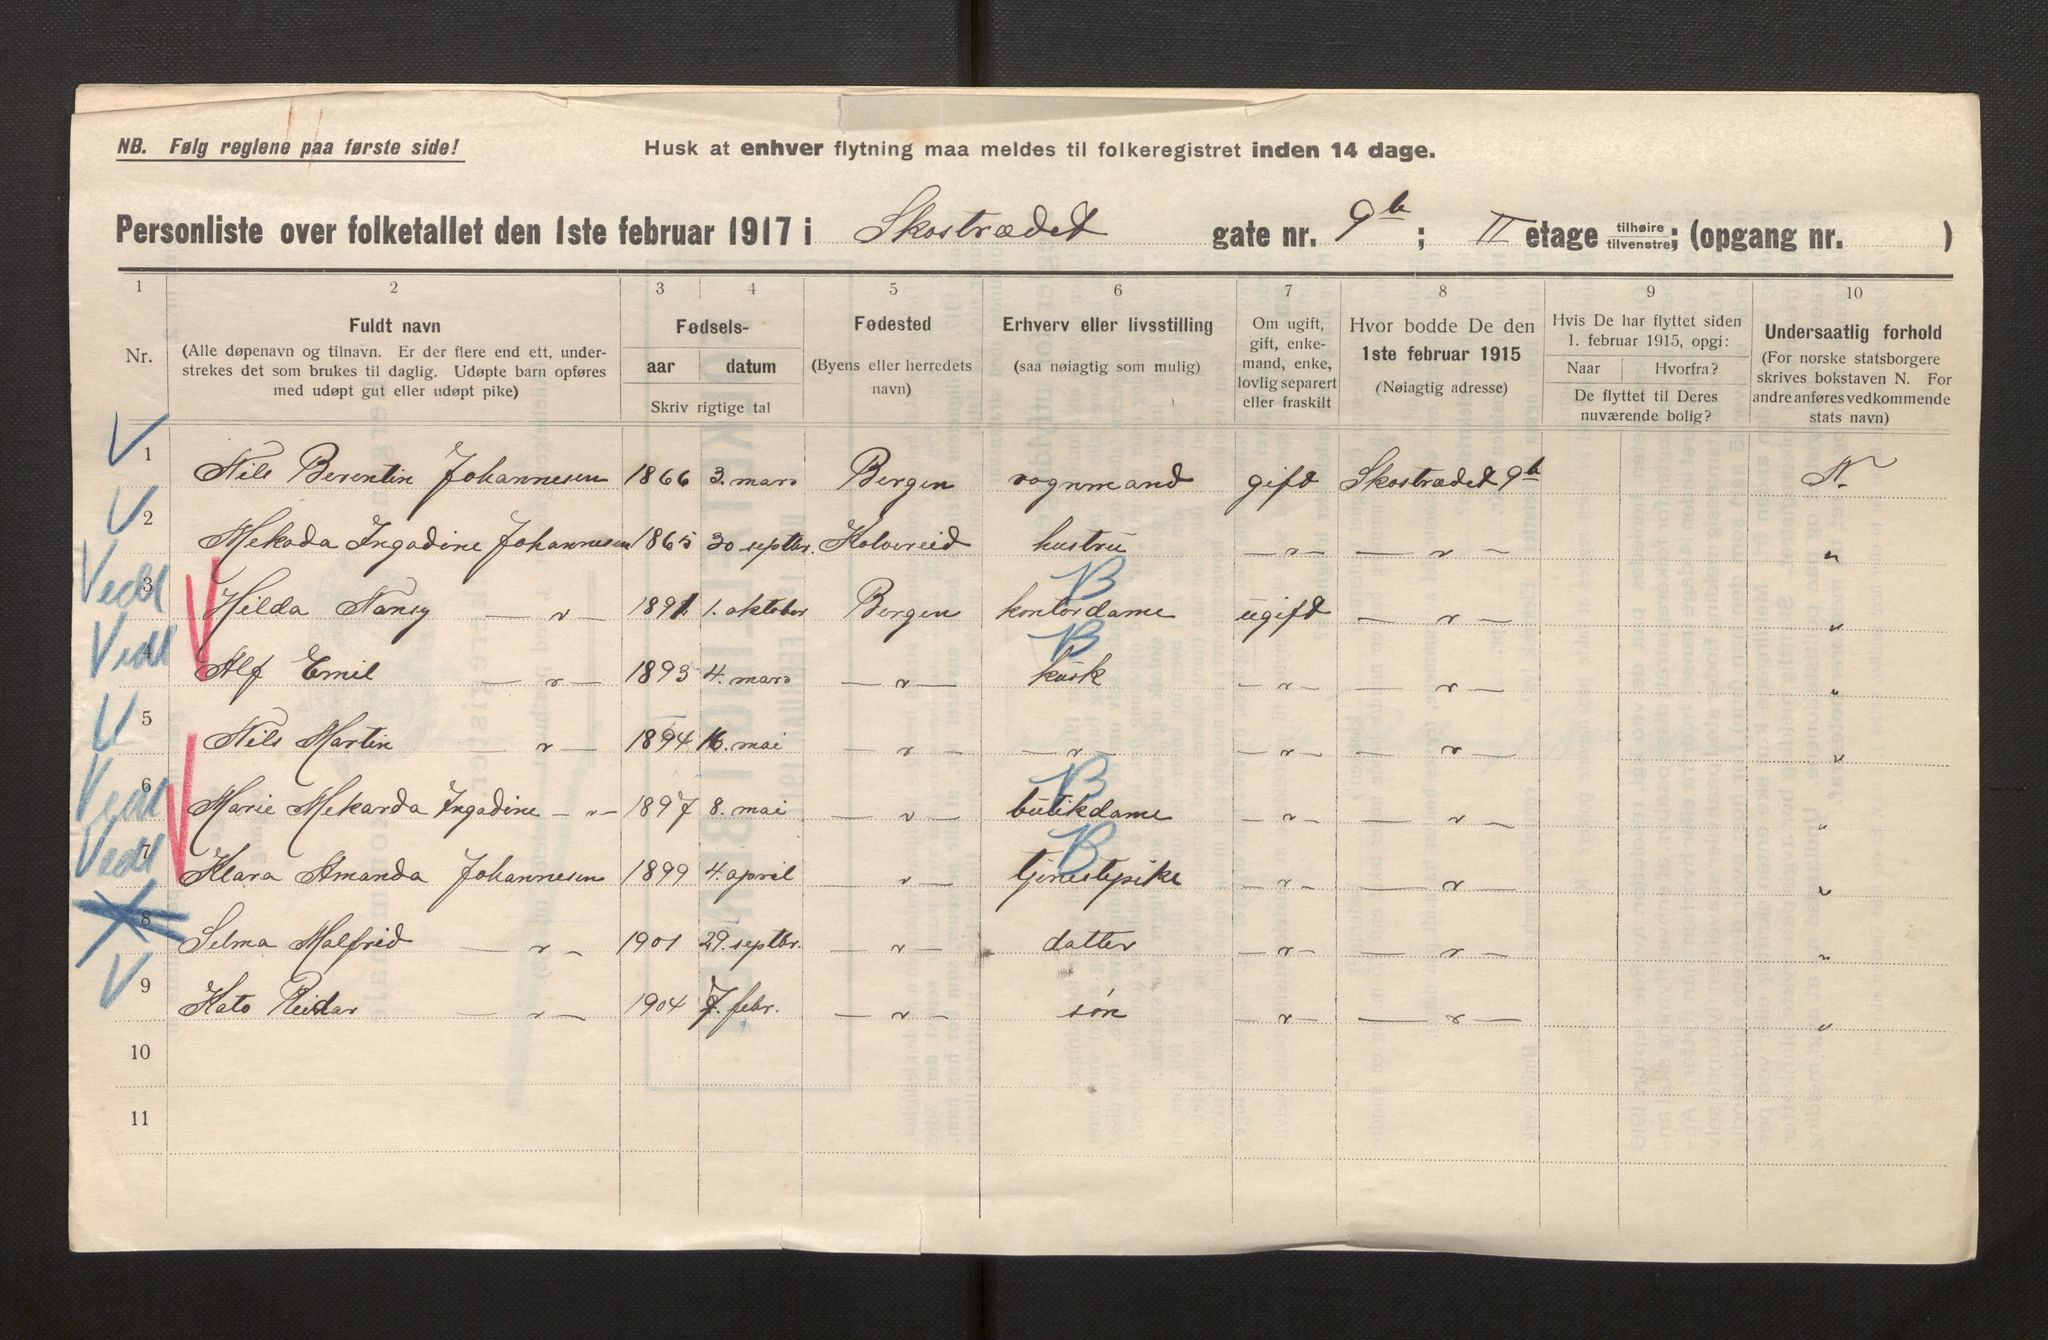 NB. Følg reglene paa første side!
Husk at enhver flytning maa meldes til folkeregistret inden 14 dage.
Personliste over folketallet den 1ste februar 1917 i Skostrædet gate nr. 9b ; II etage tilhøire tilvenstre ; (opgang nr. )
1 2 3 4 5 6 7 8 9 10
Nr.
Fuldt navn
(Alle døpenavn og tilnavn. Er der flere end ett, under-
strekes det som brukes til daglig. Udøpte barn opføres
med udøpt gut eller udøpt pike)
Fødsels-
aar datum
Skriv rigtige tal
Fødested
(Byens eller herredets
navn)
Erhverv eller livsstilling
(saa nøiagtig som mulig)
Om ugift,
gift, enke-
mand, enke,
lovlig separert
eller fraskilt
Hvor bodde De den
1ste februar 1915
(Nøiagtig adresse)
Hvis De har flyttet siden
1. februar 1915, opgi:
Naar Hvorfra?
De flyttet til Deres
nuværende bolig?
Undersaatlig forhold
(For norske statsborgere
skrives bokstaven N. For
andre anføres vedkommende
stats navn)
V 1 Nils Berentin Johannesen 1866 3. mars Bergen vognmand gift Skostrædet 9b N.
V 2 Mekada Ingadine Johannesen 1865 30 septbr. Kolvereid hustru — " — — " — "
Vedl 3 Hilda Nancy — " — 1891 1. oktober Bergen kontordame B ugift — " — "
Vedl 4 Alf Emil — " — 1893 4. mars — " — kusk B — " — — " — "
V 5 Nils Martin — " — 1894 16. mai — " — — " — — " — — " — "
Vedl 6 Marie Mekarda Ingadine — " — 1897 8. mai — " — butikdame B — " — — " — "
Vedl 7 Klara Amanda Johannesen 1899 4. april — " — tjenestepike B — " — — " — "
8 Selma Malfrid — " — 1901 29. septbr. — " — datter — " — — " — "
V 9 Kato Reidar — " — 1904 7. febr. — " — søn — " — — " — "
10
11